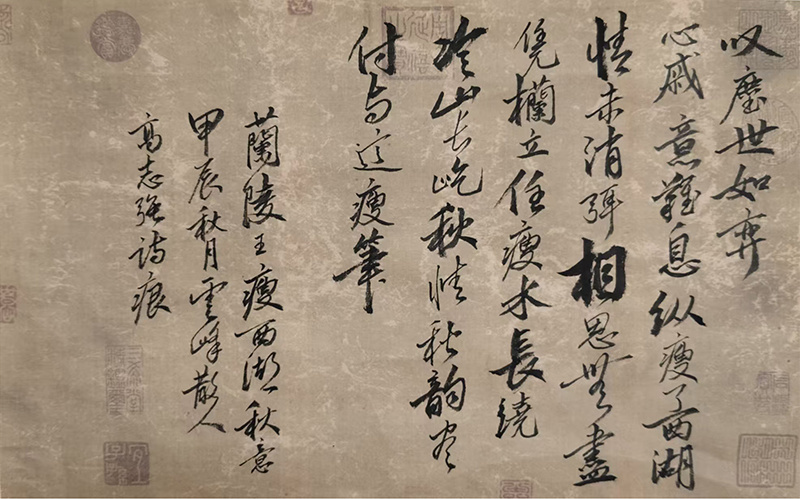 叹塵世如弈
心戚意難息纵瘦了西湖
情未消弭相思無盡
凭欄立任瘦水長繞
冷山长屹秋情秋韵尽
付与这瘦筆
蘭陵王瘦西湖秋意
甲辰秋月雲峰散人
高志强诗痕